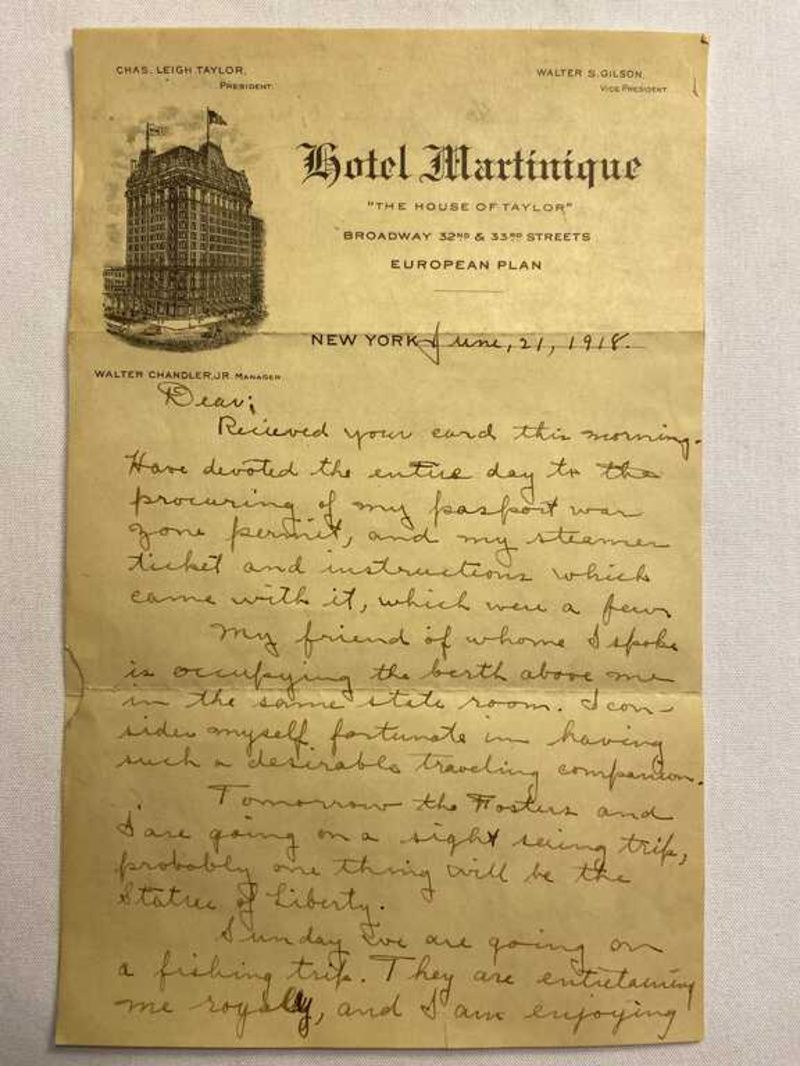 CHAS. LEIGH TAYLOR,
PRESIDENT.
WALTER S. GILSON,
VICE PRESIDENT
Hotel Martinique
"THE HOUSE OF TAYLOR"
BROADWAY 32ND & 33RD STREETS
EUROPEAN PLAN
NEW YORK June, 21, 1918.
WALTER CHANDLER, JR. MANAGER
Dear;
Recieved your card this morning.
Have devoted the entire day to the
procuring of my passport war
zone permit, and my steamer
ticket and instructions which
came with it, which were a few
My friend of whome I spoke
is occupying the berth above me
in the same state room. I con-
sider myself fortunate in having
such a desirable traveling companion.
Tomorrow the Fosters and
I are going on a sight seeing trip,
probably one thing will be the
Statue of Liberty.
Sunday we are going on
a fishing trip. They are entertaining
me royally, and I am enjoying